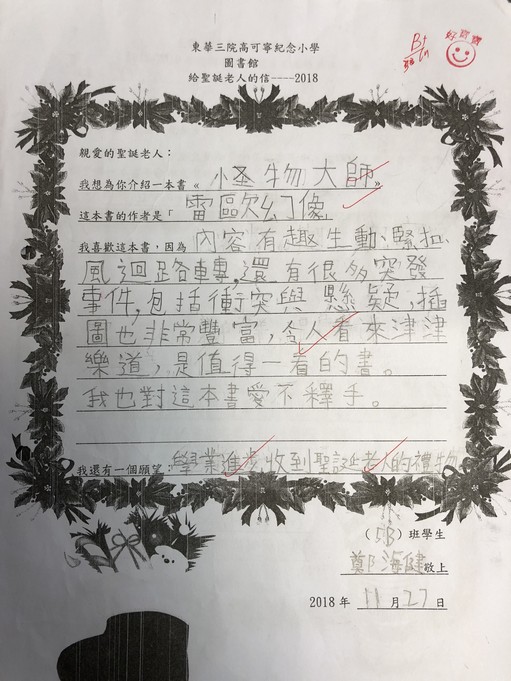 東華三院高可寧紀念小學
圖書館
給聖誕老人的信----2018
B+
好寶寶
親愛的聖誕老人：
我想為你介紹一本書《怪物大師》
這本書的作者是「雷歐幻像
我喜歡這本書，因為 內容有趣生動、緊扣、
風迴路轉，還有很多突發
事件，包括衝突與懸疑，插
圖也非常豐富，令人看來津津
樂道，是值得一看的書。
我也對這本書愛不釋手。
我還有一個願望：學業進步 收到聖誕老人的禮物
（5B）班學生
鄭海健敬上
2018 年 11 月 27 日